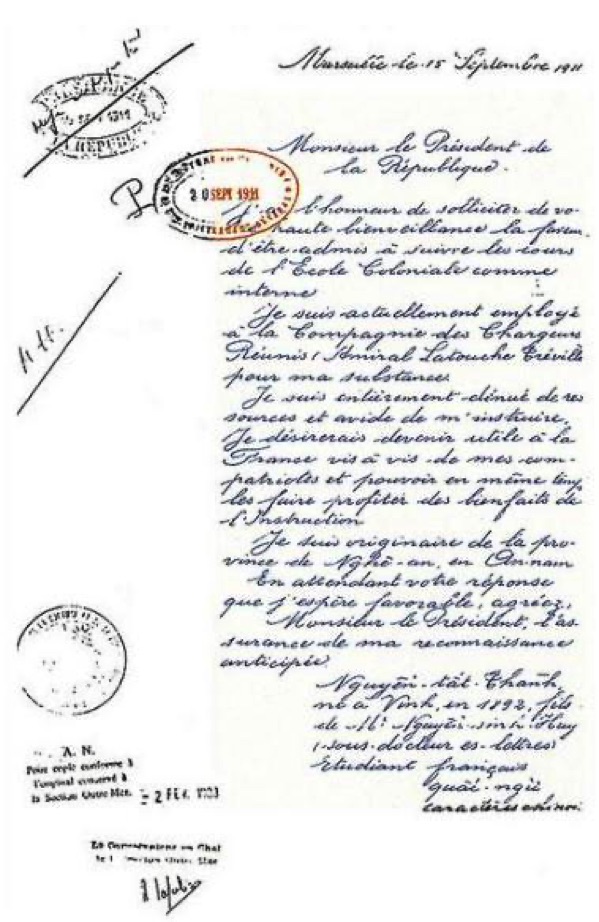 Marseille le 15 Septembre 1911
Monsieur le Président de
la République.
20 SEPT 1911
l'honneur de solliciter de vo-
haute bienveillance la faveur
d'être admis à suivre les cours
de l'Ecole Coloniale comme
interne
Je suis actuellement employé
à la Compagnie des Chargeurs
Réunis (Amiral Latouche Tréville
pour ma substance.
Je suis entièrement dénué de res
sources et avide de m'instruire.
Je désirerais devenir utile à la
France vis à vis de mes com-
patriotes et pouvoir en même temps
les faire profiter des bienfaits de
l'Instruction
Je suis originaire de la pro-
vince de Nghê-an, en An-nam
En attendant votre réponse
que j'espère favorable, agréez,
Monsieur le Président, l'as-
surance de ma reconnaissance
anticipée
Nguyễn-tất-Thành,
né à Vinh, en 1892, fils
de Mr Nguyễn-sinh-Huy
(sous-docteur ès-lettres)
Etudiant français
quốc-ngữ
caractères chinois
A. N.
Pour copie conforme à
l'original conservé à
la Section Outre-Mer.